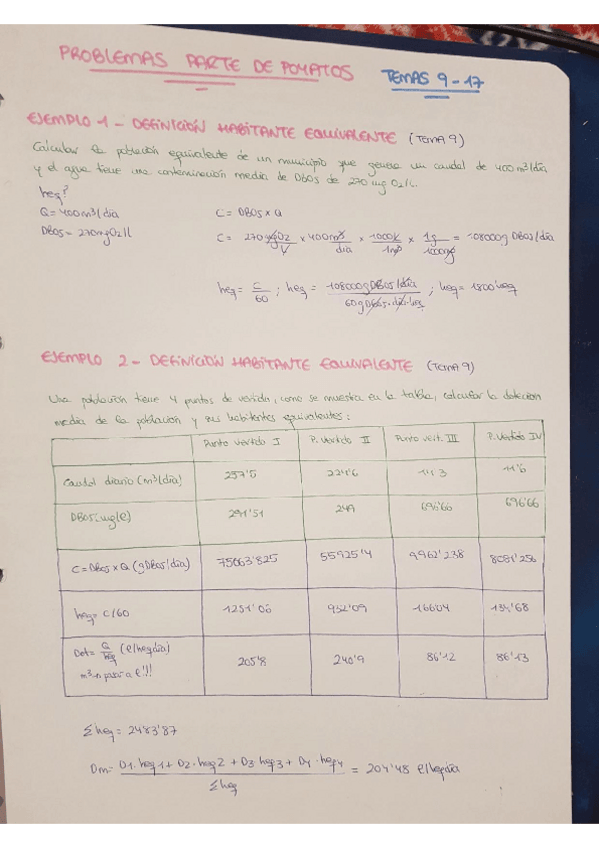 PROBLEMAS PARTE DE POYATOS TEMAS 9-17
EJEMPLO 1 - DEFINICIÓN HABITANTE EQUIVALENTE (TEMA 9)
Calcular la población equivalente de un municipio que genera un caudal de 400 m³/día
y el agua tiene una contaminación media de DBO5 de 270 mg O2/L.
heq?
Q = 400 m³/día C = DBO5 x Q
DBO5 = 270 mg O2/l C = 270 mg O2/L x 400 m³/día x 1000 l/1 m³ x 1g/1000mg = 108000 g DBO5/día
heq = C/60 ; heq = 108000 g DBO5/día / 60 g DBO5·día·heq ; heq = 1800 heq
EJEMPLO 2 - DEFINICIÓN HABITANTE EQUIVALENTE (TEMA 9)
Una población tiene 4 puntos de vertido, como se muestra en la tabla, calcular la dotación
media de la población y sus habitantes equivalentes:
Punto vertido I P. vertido II Punto vert. III P. vertido IV
Caudal diario (m³/día) 257'5 224'6 14'3 11'6
DBO5 (mg/l) 291'51 249 696'66 696'66
C = DBO5 x Q (g DBO5/día) 75063'825 55925'4 9962'238 8081'256
heq = C/60 1251'06 932'09 166'04 134'68
Dot = Q/heq (l/heq día) 205'8 240'9 86'12 86'13
m³ → pasar a l!!!
Σ heq = 2483'87
Dm = D1·heq1 + D2·heq2 + D3·heq3 + D4·heq4 / Σ heq = 204'48 l/heq día